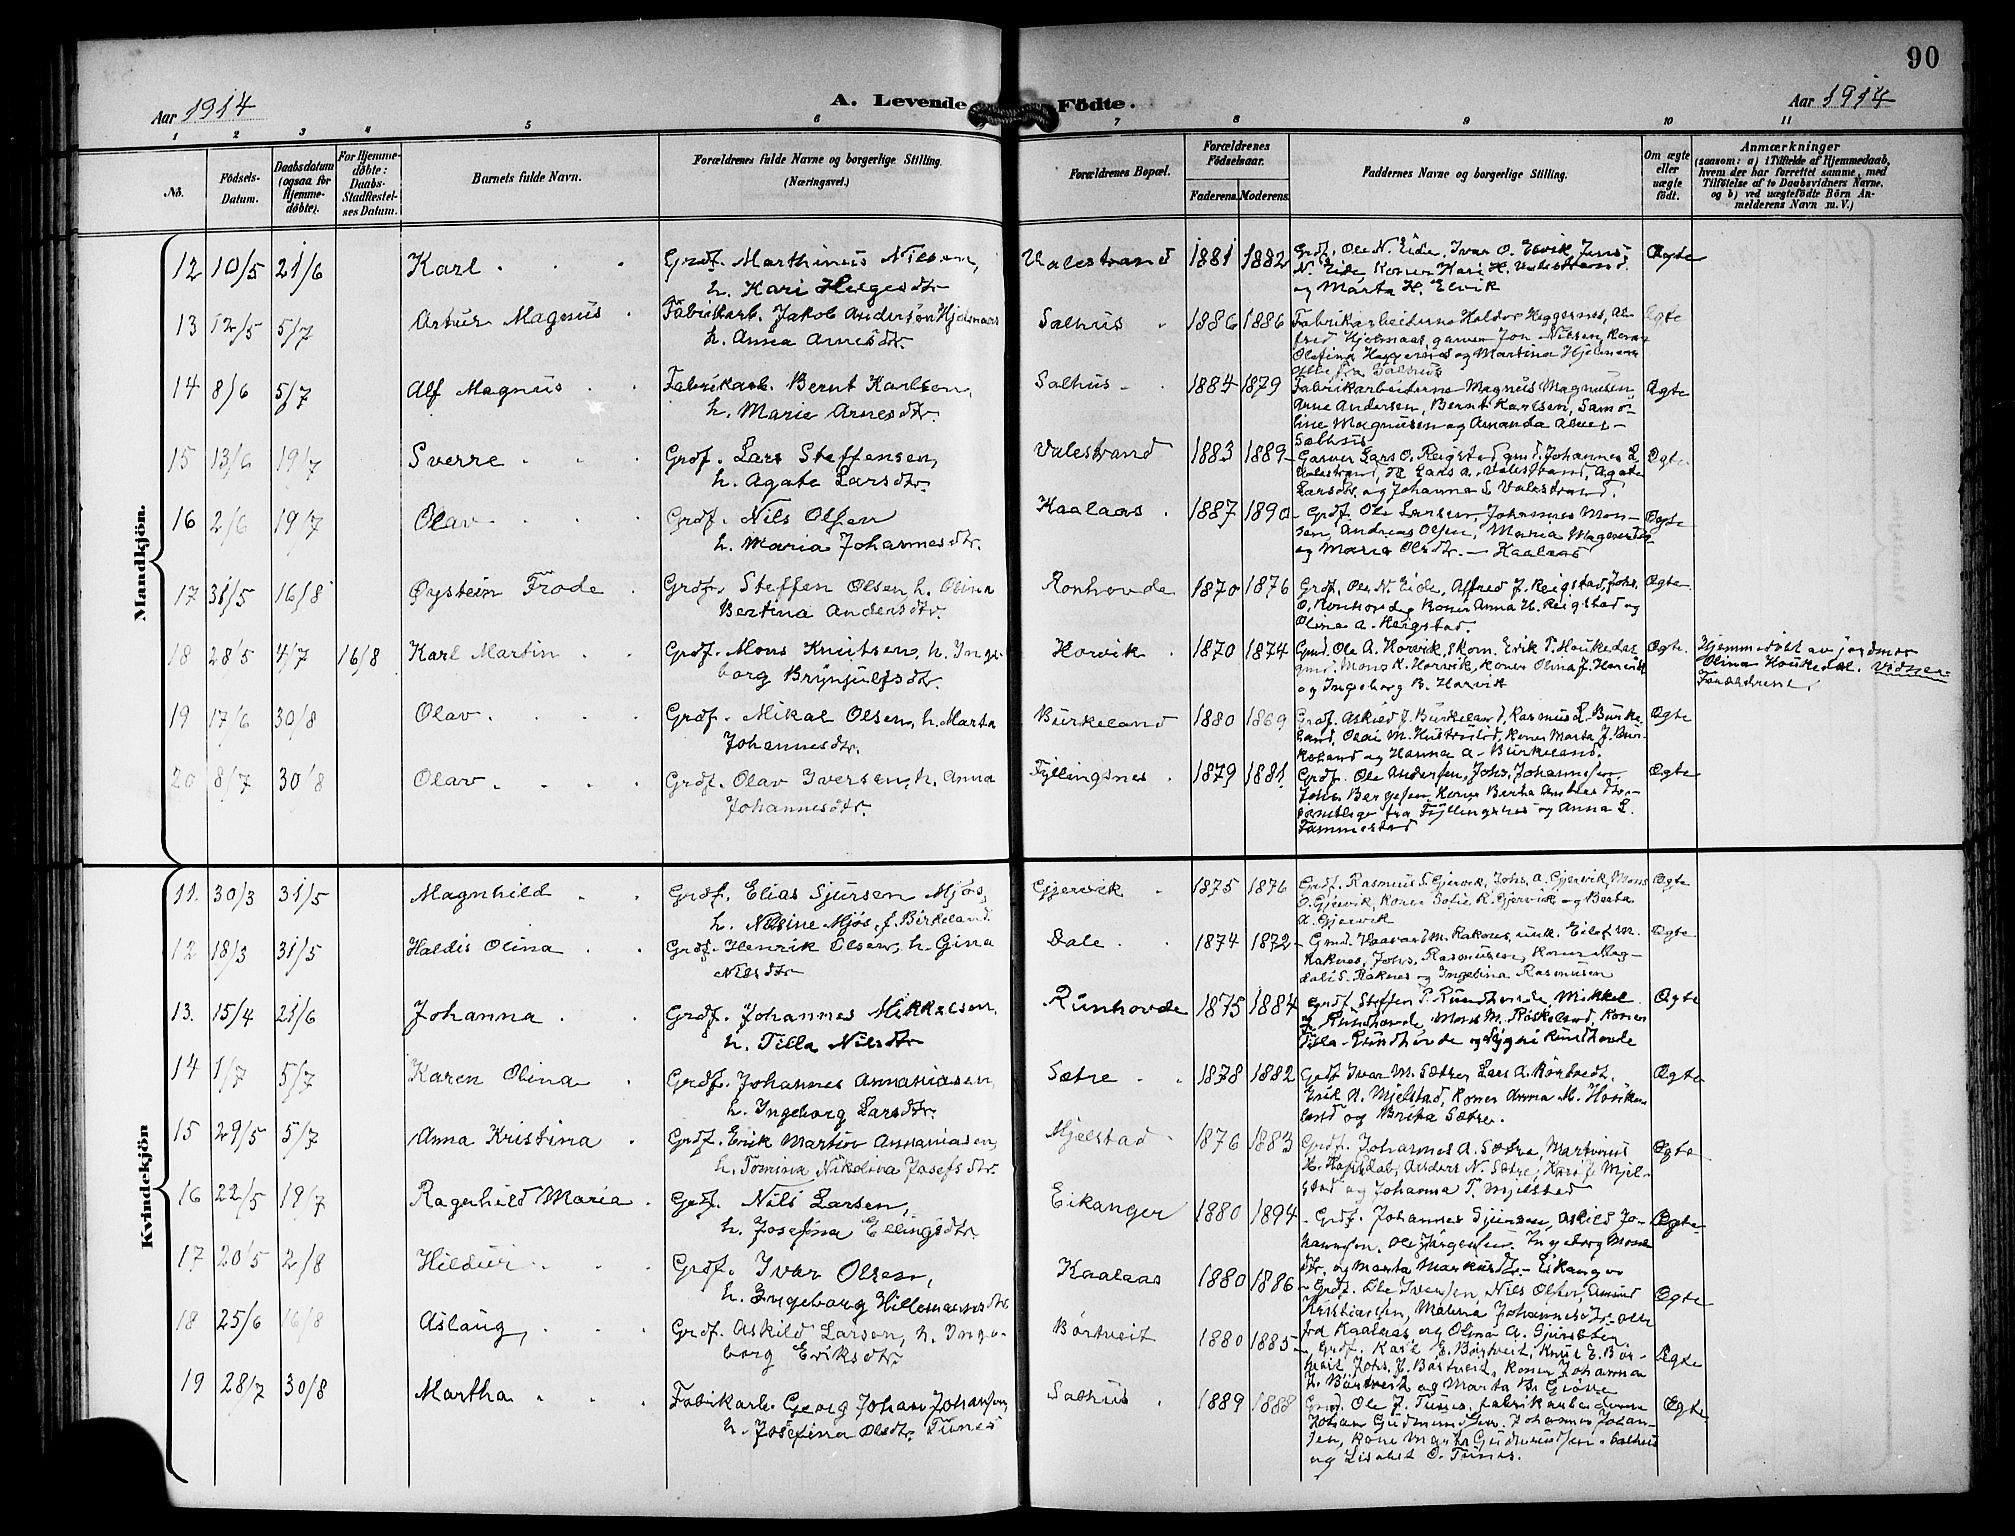 90
Aar 1914
A. Levende Födte.
Aar 1914
1 2 3 4 5 6 7 8 9 10 11
No.
Födsels-Datum.
Daabsdatum (ogsaa for Hjemme-döbte).
For Hjemme-döbte: Daabs-Stadfæstel-ses Datum.
Barnets fulde Navn.
Forældrenes fulde Navne og borgerlige Stilling. (Næringsvei.)
Forældrenes Bopæl.
Forældrenes Födselsaar.
Faderens. Moderens.
Faddernes Navne og borgerlige Stilling.
Om ægte eller uægte födt.
Anmærkninger
(saasom: a) i Tilfælde af Hjemmedaab, hvem der har forrettet samme, med Tilföielse af to Daabsvidners Navne, og b) ved uægtefödte Börn An-melderens Navn m. V.)
Mandkjön.
12 10/5 21/6 Karl Grdf. Marthinus Nilsen, h. Kari Helgesdtr Valestrand 1881 1882 Grdf. Ole N. Eide, Ivar O. Elvik, Jens N. Eide, Koner Kari H. Valestrand og Marta H. Elvik Ægte
13 12/5 5/7 Artur Magnus Fabrikarb. Jakob Anderson Hjelmaas h. Anna Arnesdtr. Salhus 1886 1886 Fabrikarbeiderne Haldor Heggernes, Alfred Hjelmaas, garver Jon Nilsen, Koner Olefina Heggernes og Martina Hjelmaas alle fra Salhus Ægte
14 8/6 5/7 Alf Magnus Fabrikarb. Bernt Karlsen, h. Marie Arnesdtr. Salhus 1884 1879 Fabrikarbeiderne Magnus Magnusen, Arne Andersen, Bernt Karlsen, Magnusen og Amanda Salhus Ægte
15 13/6 19/7 Sverre Grdf. Lars Steffensen, h. Agate Larsdtr. Valestrand 1883 1889 Garver Lars O. Reigstad, gmd. Johannes L. Valestrand, Lars A. Valestrand, Agate Larsdtr. og Johanna L. Valestrand. Ægte
16 2/6 19/7 Olav Grdf. Nils Olsen h. Maria Johannesdtr. Kaalaas 1887 1890 Grdf. Ole Larsen, Johannes Monsen, Andreas Olsen, Maria og Maria Olsdtr. – Kaalaas Ægte
17 31/5 16/8 Øystein Frode Grdf. Steffen Olsen, h. Olina Bertina Andersdtr. Ronhovde 1870 1876 Grdf. Ole N. Eide, Alfred J. Reigstad, Johs. O. Ronhovde, Koner Anna H. Reigstad og Olina A. Reigstad. Ægte
18 28/5 4/7 16/8 Karl Martin Grdf. Mons Knutsen, h. Ingeborg Brynjulfsdtr. Horvik 1870 1874 Gmd. Ole A. Horvik, Erik T. Houkedal gmd. Mons K. Horvik, Koner Olina J. Horvik og Ingeborg B. Horvik Ægte. Hjemmedöbt av jordmor Olina Houkedal. Vidner: Forældrene.
19 17/6 30/8 Olav Grdf. Mikal Olsen, h. Marta Johannesdtr. Burkeland 1880 1869 Grdf. Askild J. Burkeland, Rasmus L. Burkeland, Olai M. Koner Marta J. Burkeland og Hanna A. Burkeland. Ægte
20 8/7 30/8 Olav Grdf. Olav Iversen, h. Anna Johannesdtr. Fyllingsnes 1879 1881 Grdf. Ole Andersen, Johs. Johannesen, Johs. Børgesen, Koner Berta samtlige fra Fyllingsnes og Anna L. Tammestad Ægte
Kvindekjön
11. 30/3 31/5 Magnhild Grdf. Elias Sjursen Mjøs, h. Nilsine Mjøs, f. Birkeland Gjervik 1875 1876 Grdf. Rasmus S. Gjervik, Johs. A. Gjervik, Mons O. Gjervik, Koner Sofie R. Gjervik og Berta A. Gjervik Ægte
12 18/3 31/5 Haldis Olina Grdf. Henrik Olsen, h. Gina Nilsdtr Dale 1874 1872 Gmd. Haavard M. Raknes, unk. Eilef M. Raknes, Johs. Rasmussen, Koner Magdali S. Raknes og Ingelina Rasmusen Ægte
13. 15/4 21/6 Johanna Grdf. Johannes Mikkelsen, h. Tilla Nilsdtr Runhovde 1875 1884 Grdf. Steffen P. Rundhovde, Mikkel Rundhovde, Mons M. Røskeland, Koner Tilla Rundhovde og Rundhovde Ægte
14 1/7 5/7 Karen Olina Grdf. Johannes Annaniasen, h. Ingeborg Larsdtr. Sætre 1878 1882 Grdf. Ivar M. Sætre, Lars A. Børtvedt, Erik A. Mjelstad, Koner Anna M. og Brita Sætre. Ægte
15 29/5 5/7 Anna Kristina Grdf. Erik Martin Annaniasen, h. Tomina Nikolina Josefsdtr. Mjelstad 1876 1883 Grdf. Johannes A. Sætre, Martinus H. Hopsdal, Anders N. Sætre, Kari J. Mjelstad og Johanna T. Mjelstad Ægte
16 22/5 19/7 Ragnhild Maria Grdf. Nils Larsen, h. Josefina Ellingsdtr. Eikanger 1880 1894 Grdf. Johannes Sjursen, Askild Johannesen, Ole Jørgensen, Ingeborg Monsdtr. og Marta Markusdtr. – Eikanger Ægte
17 20/5 2/8 Hildur Grdf. Ivar Olsen, h. Ingeborg Hillemannsdtr. Kaalaas 1880 1886 Grdf. Ole Iversen, Nils Olsen, Kristiansen, Malena Johannesdtr. alle fra Kaalaas, og Olina A. Ægte
18 25/6 16/8 Aslaug Grdf. Askild Larsen, h. Ingeborg Eriksdtr. Børtveit 1880 1885 Grdf. Karl E. Børtveit, Knut E. Børtveit, Johs. J. Børtveit, Koner Johanna Børtveit og Marta Ægte
19 28/7 30/8 Martha Fabrikarb. Georg Johan Johansen, h. Josefina Olsdtr. Tunes Salhus 1889 1888 Gmd. Ole J. Tunes, fabrikarbeiderne Johan Gudmundsen, Johannes Johansen, Kone Marta Gudmundsen – Salhus og Lisabet O. Tunes. Ægte